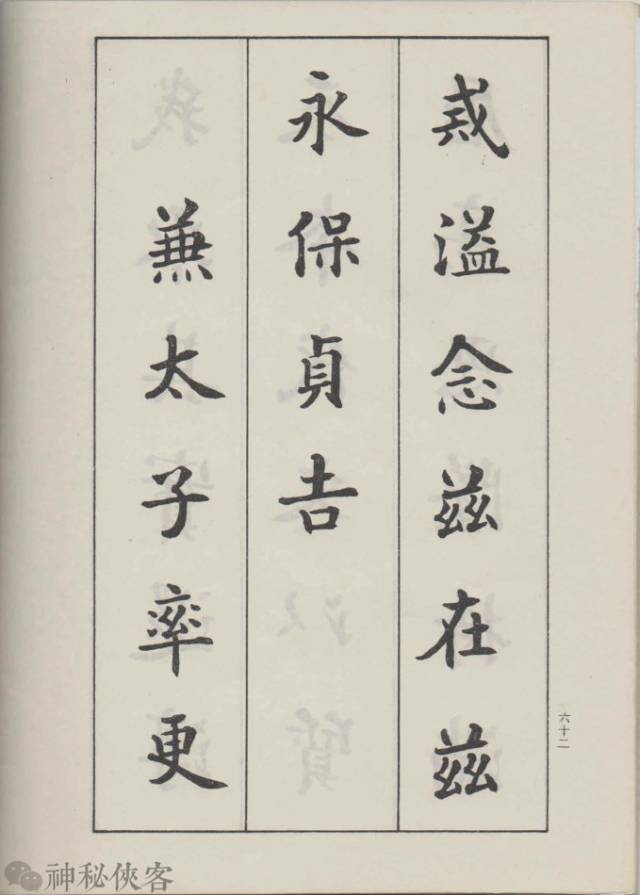 戒溢念兹在兹
永保貞吉
兼太子率更
六十二
神秘俠客